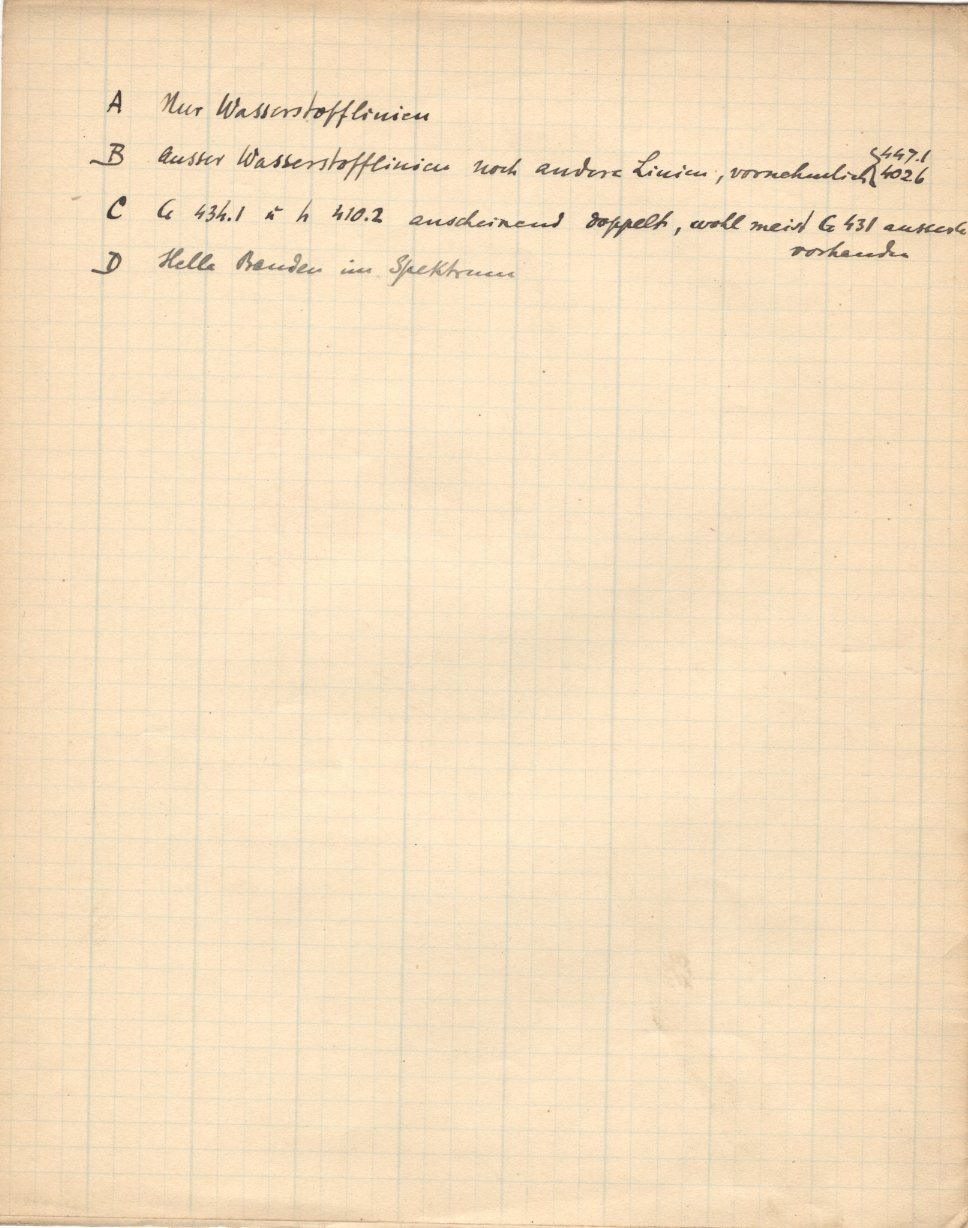 A Nur Wasserstofflinien
B Ausser Wasserstofflinien noch andere Linien, vornehmlich { 447.1
4026
C G 434.1 u h 410.2 anscheinend doppelt, wohl meist G 431
vorhanden
D Helle Banden im Spektrum